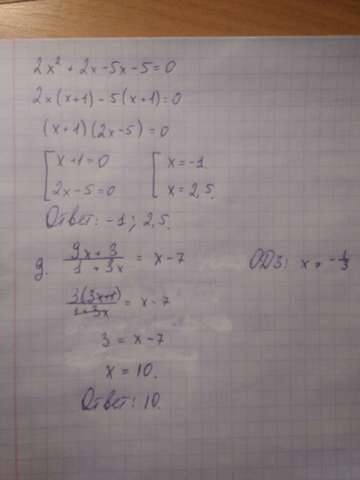 2x² + 2x - 5x - 5 = 0
2x(x+1) - 5(x+1) = 0
(x+1)(2x-5) = 0
[ x+1=0 [ x=-1
[ 2x-5=0 [ x=2,5.
Ответ: -1; 2,5.
9. (9x+3)/(1+3x) = x-7 ОДЗ: x ≠ -1/3
3(3x+1)/(1+3x) = x-7
3 = x-7
x = 10.
Ответ: 10.